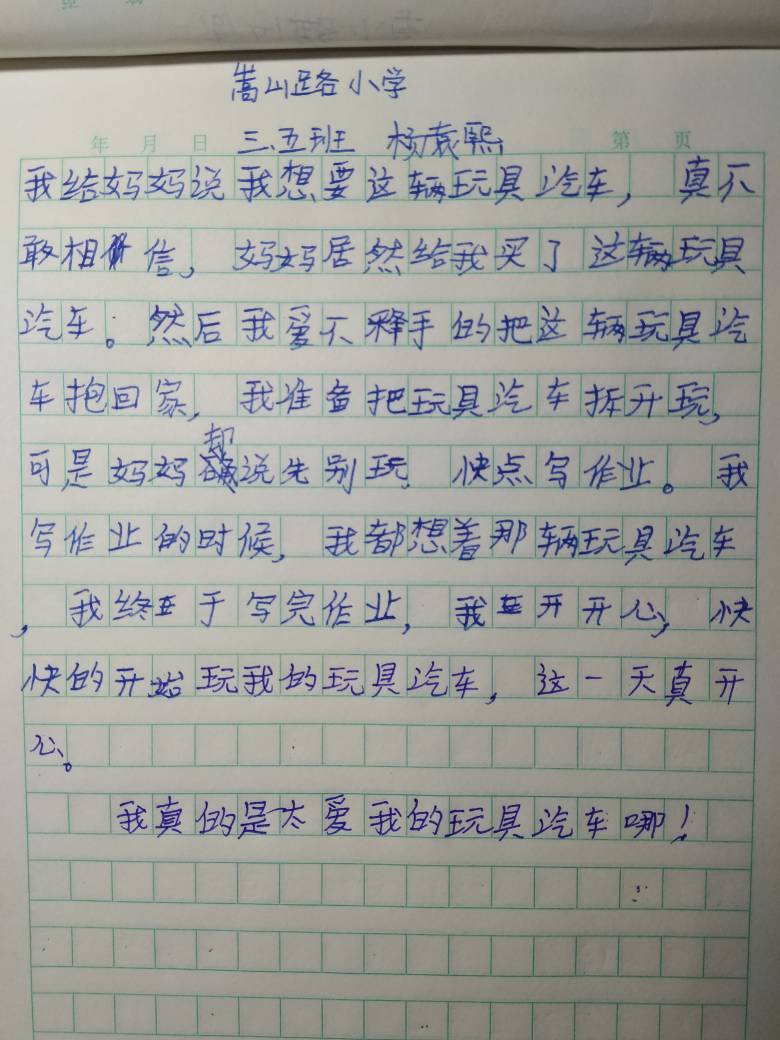 嵩山路小学
年 月 日 三、五班 杨袁熙 第 页
我给妈妈说我想要这辆玩具汽车，真不
敢相信，妈妈居然给我买了这辆玩具
汽车。然后我爱不释手的把这辆玩具汽
车抱回家，我准备把玩具汽车拆开玩，
可是妈妈却说先别玩，快点写作业。我
写作业的时候，我都想着那辆玩具汽车
，我终于写完作业，我在开开心，快
快的开始玩我的玩具汽车，这一天真开
心。
我真的是太爱我的玩具汽车哪！